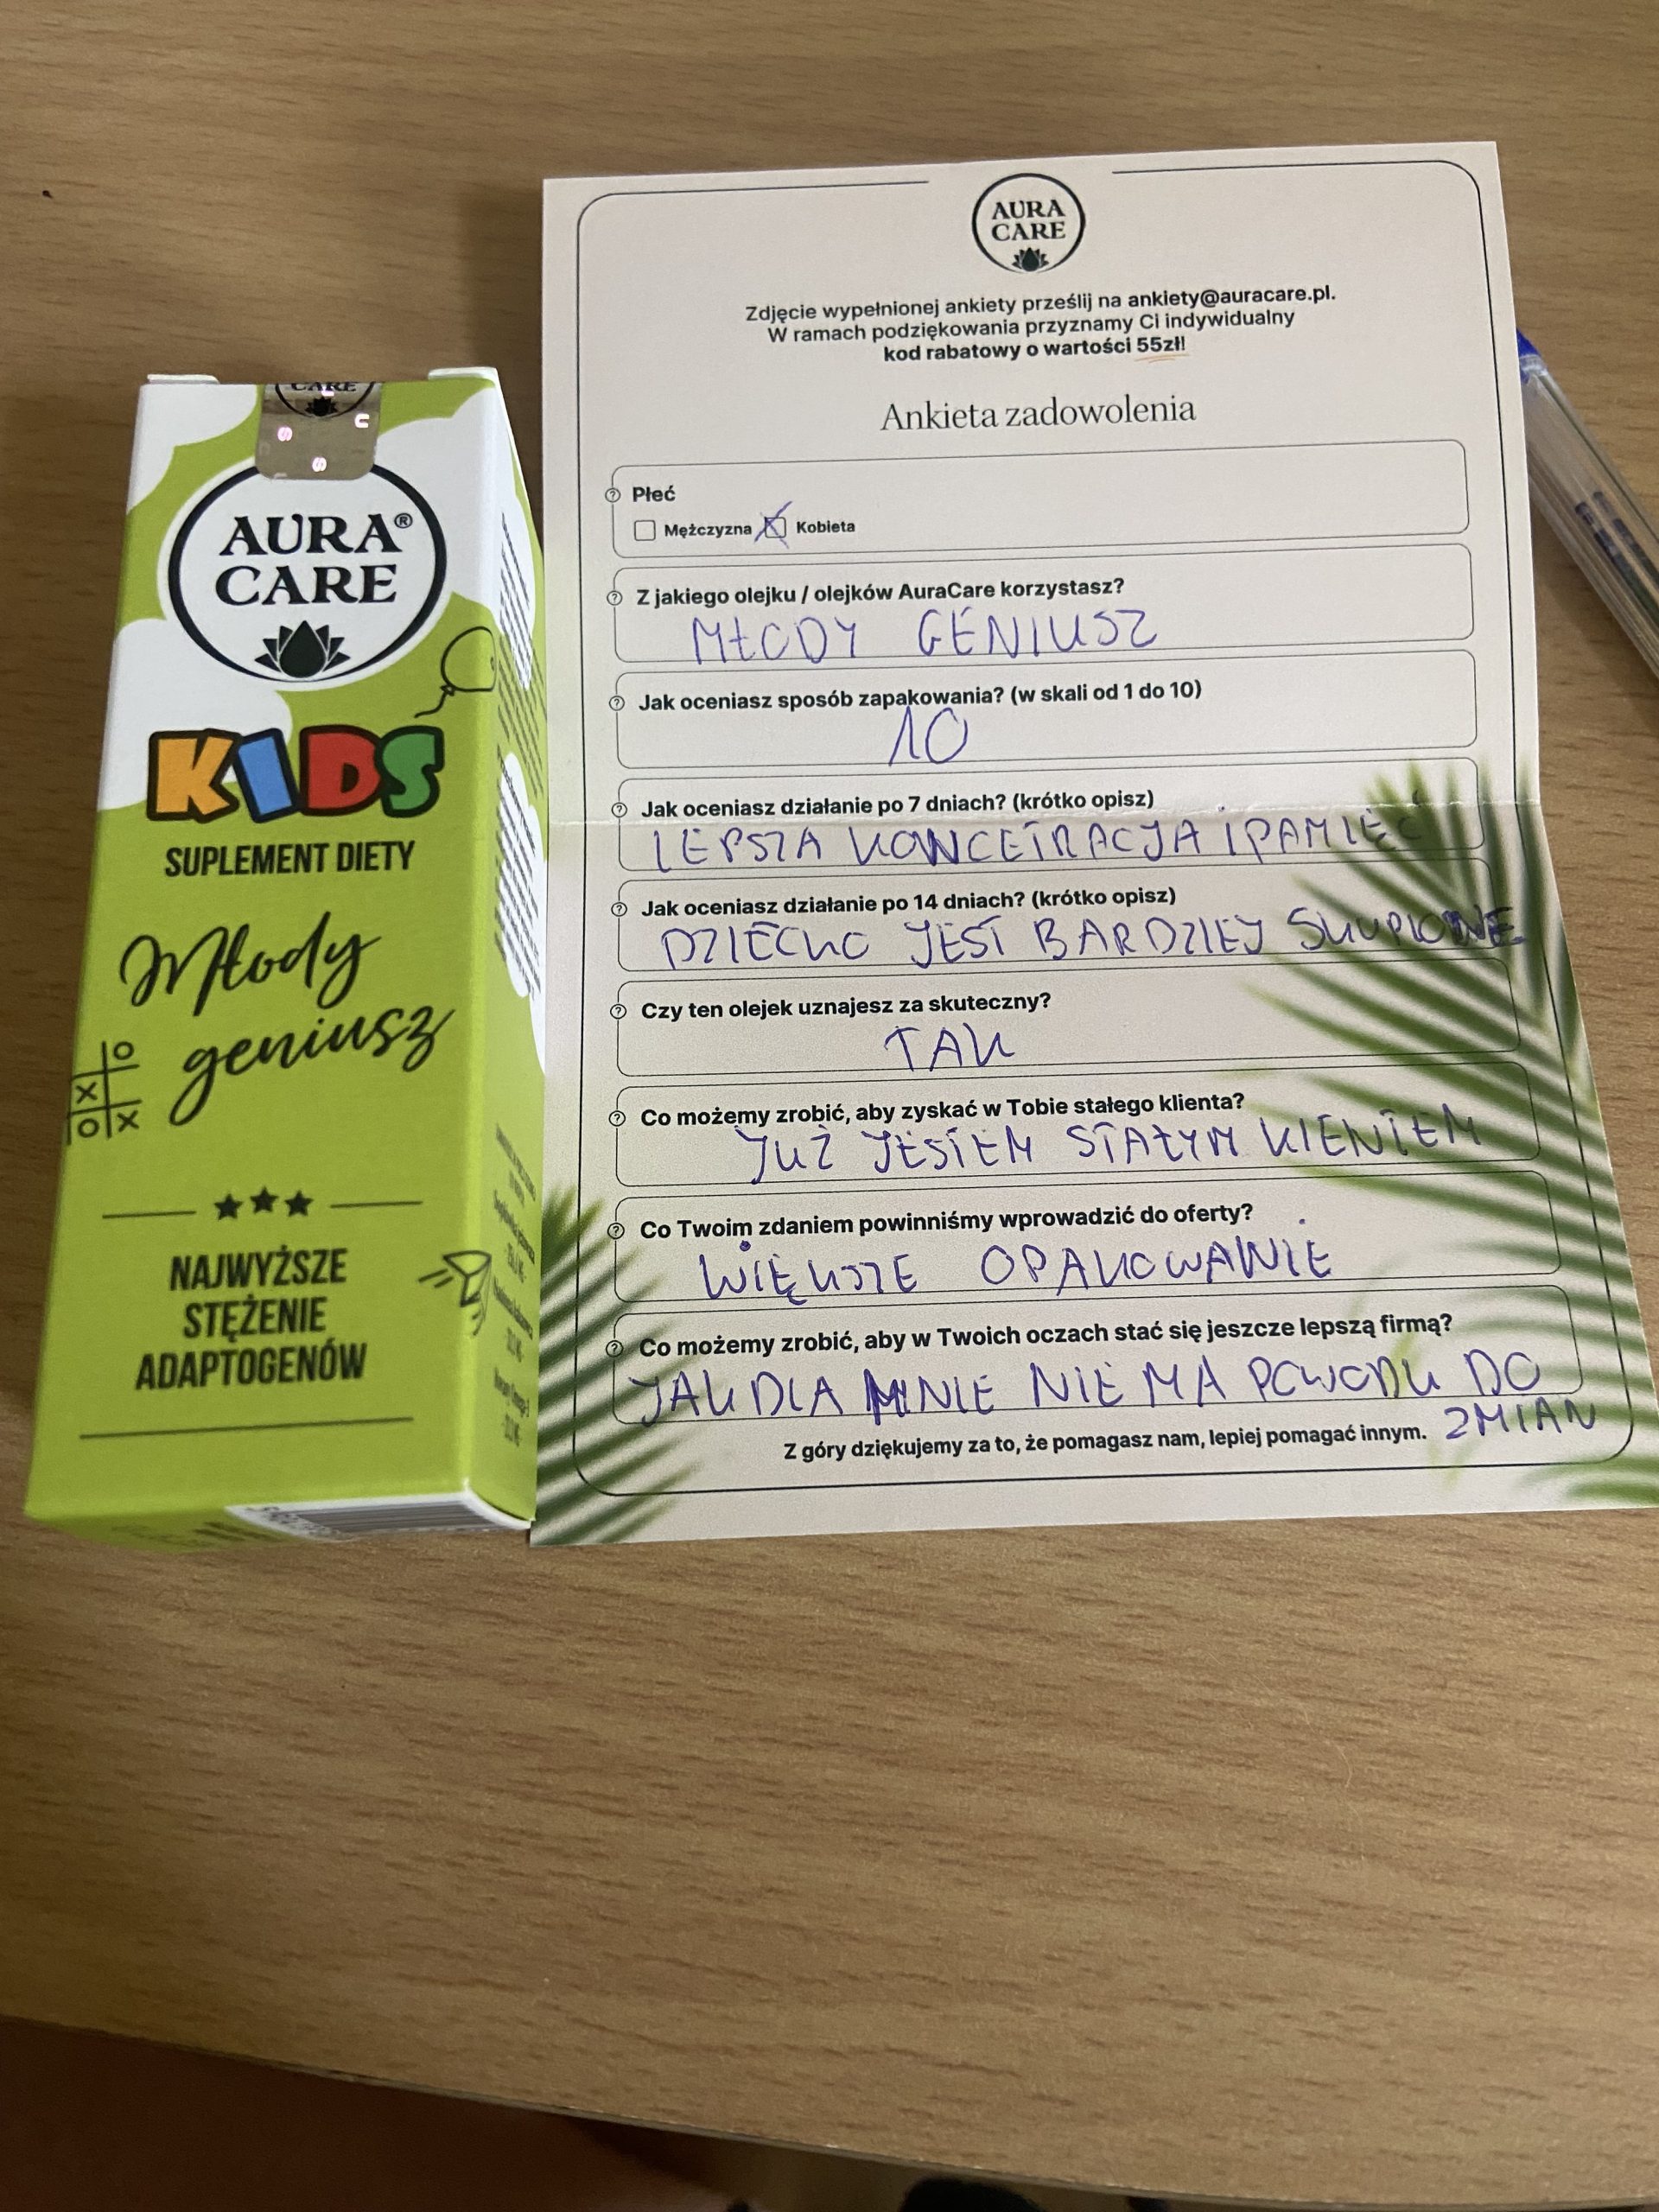 CARE
AURA®
CARE
KIDS
SUPLEMENT DIETY
Młody
geniusz
NAJWYŻSZE
STĘŻENIE
ADAPTOGENÓW
AURA
CARE
Zdjęcie wypełnionej ankiety prześlij na ankiety@auracare.pl.
W ramach podziękowania przyznamy Ci indywidualny
kod rabatowy o wartości 55zł!
Ankieta zadowolenia
Płeć
Mężczyzna Kobieta
Z jakiego olejku / olejków AuraCare korzystasz?
MŁODY GENIUSZ
Jak oceniasz sposób zapakowania? (w skali od 1 do 10)
10
Jak oceniasz działanie po 7 dniach? (krótko opisz)
LEPSZA KONCETRACJA I PAMIĘĆ
Jak oceniasz działanie po 14 dniach? (krótko opisz)
DZIECKO JEST BARDZIEJ SKUPIONE
Czy ten olejek uznajesz za skuteczny?
TAK
Co możemy zrobić, aby zyskać w Tobie stałego klienta?
JUŻ JESTEM STAŁYM KIENTEM
Co Twoim zdaniem powinniśmy wprowadzić do oferty?
WIĘKSZE OPAKOWANIE
Co możemy zrobić, aby w Twoich oczach stać się jeszcze lepszą firmą?
JAK DLA MNIE NIE MA POWODU DO
ZMIAN
Z góry dziękujemy za to, że pomagasz nam, lepiej pomagać innym.